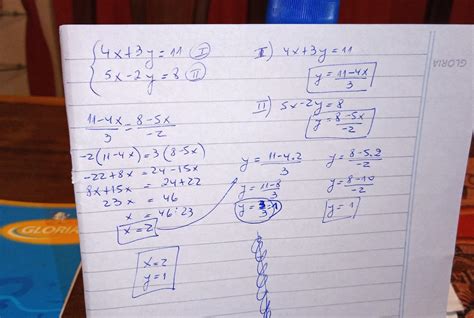 4x+3y=11 I
5x-2y=8 II
11-4x/3 = 8-5x/-2
-2(11-4x)=3(8-5x)
-22+8x=24-15x
8x+15x = 24+22
23x = 46
x = 46:23
x=2
x=2
y=1
I) 4x+3y=11
y=11-4x/3
II) 5x-2y=8
y=8-5x/-2
y=11-4.2/3
y=11-8/3
y=3/3=1
y=8-5.2/-2
y=8-10/-2
y=1
GLORIA
GLORIA